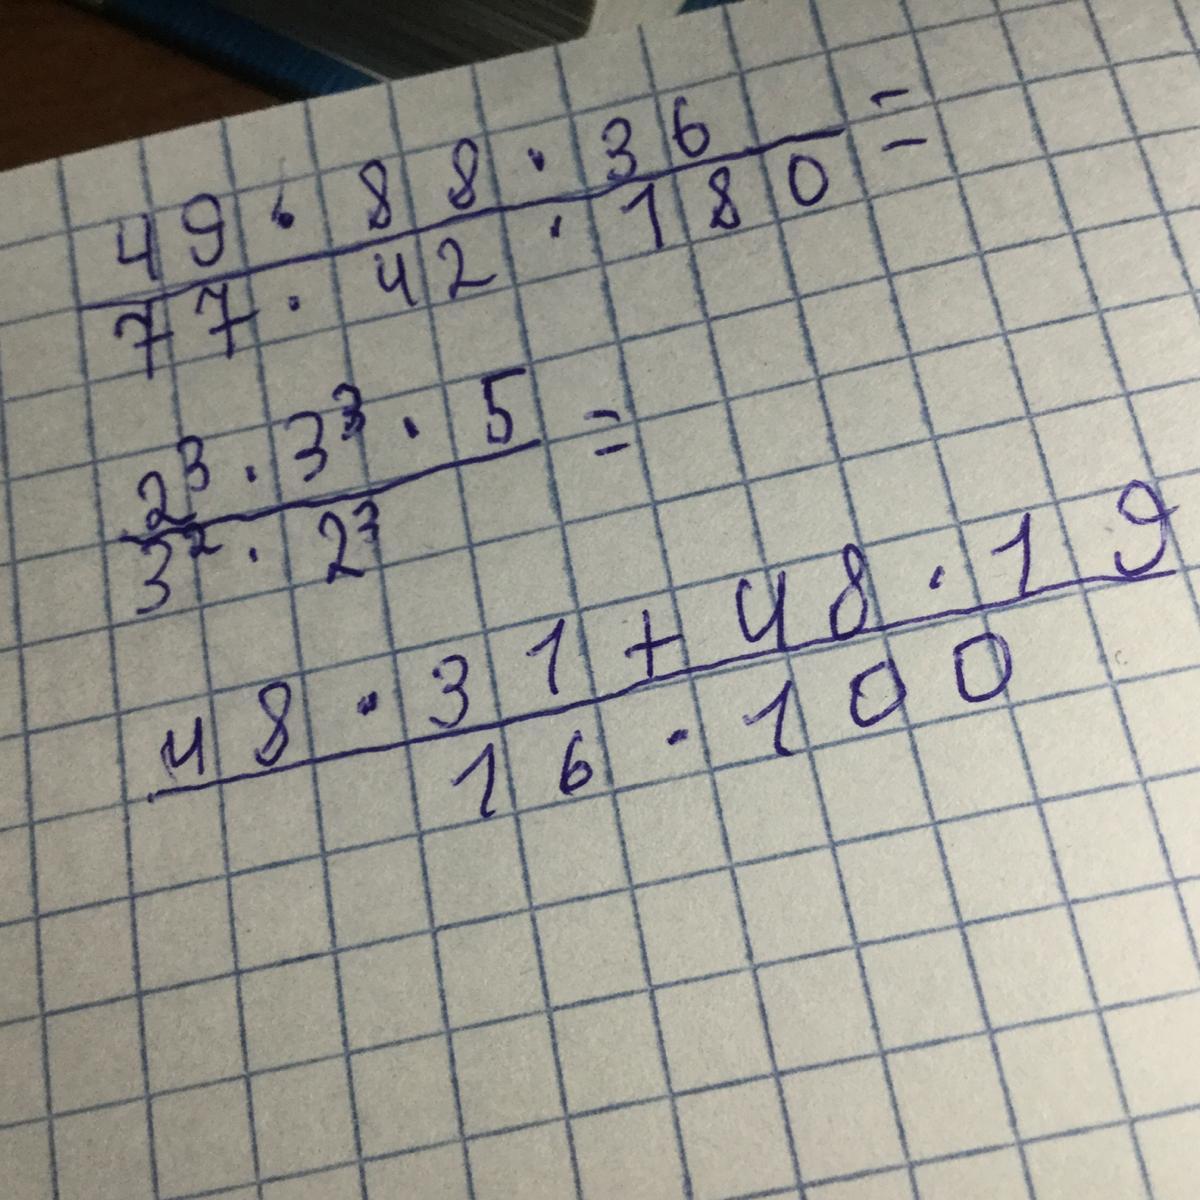 49 · 88 · 36 =
77 · 42 · 180
2³ · 3³ · 5 =
3² · 2⁷
48 · 31 + 48 · 19
16 · 100